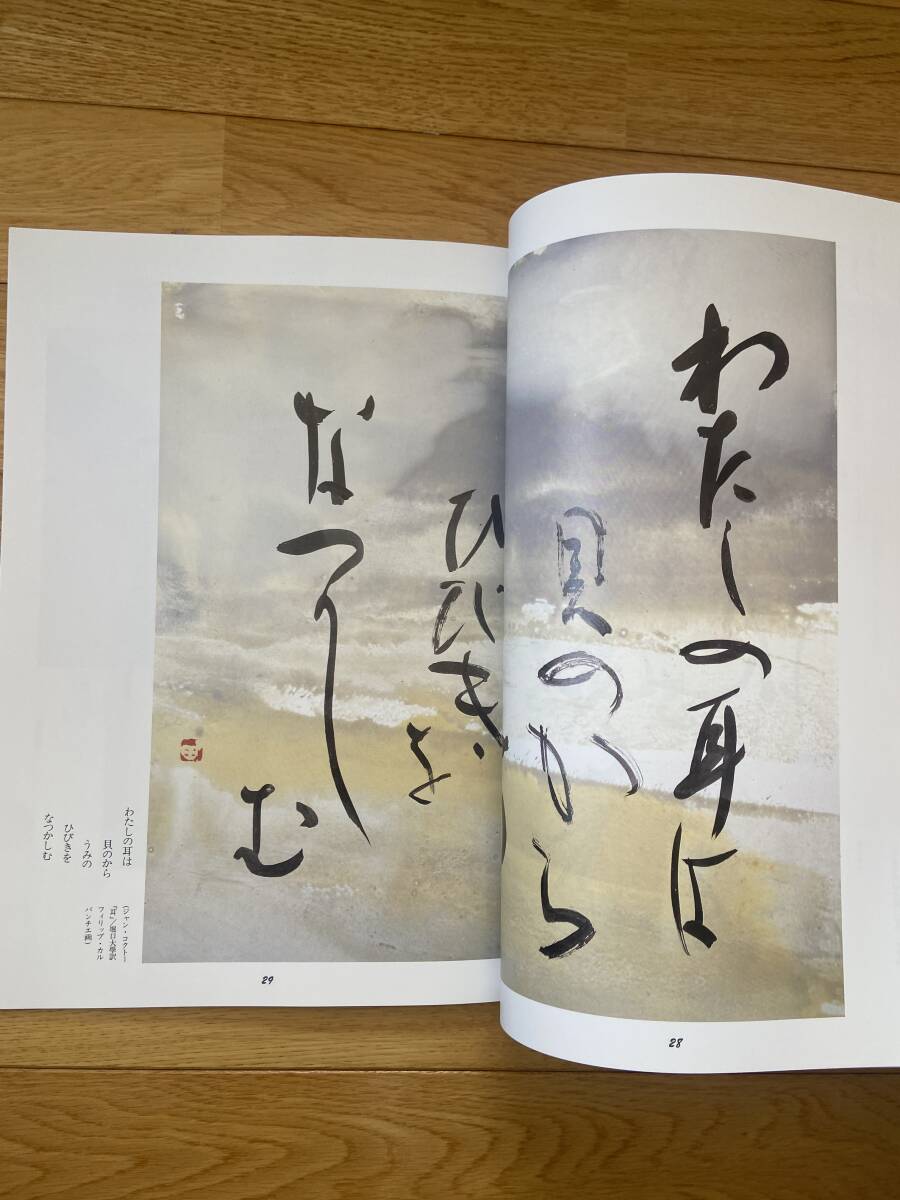 わたしの耳は
貝のから
ひびきを
なつかしむ
28
わたしの耳は
貝のから
うみの
ひびきを
なつかしむ
(ジャン・コクトー
『耳』/堀口大學訳
フィリップ・カル
パンチエ画)
29